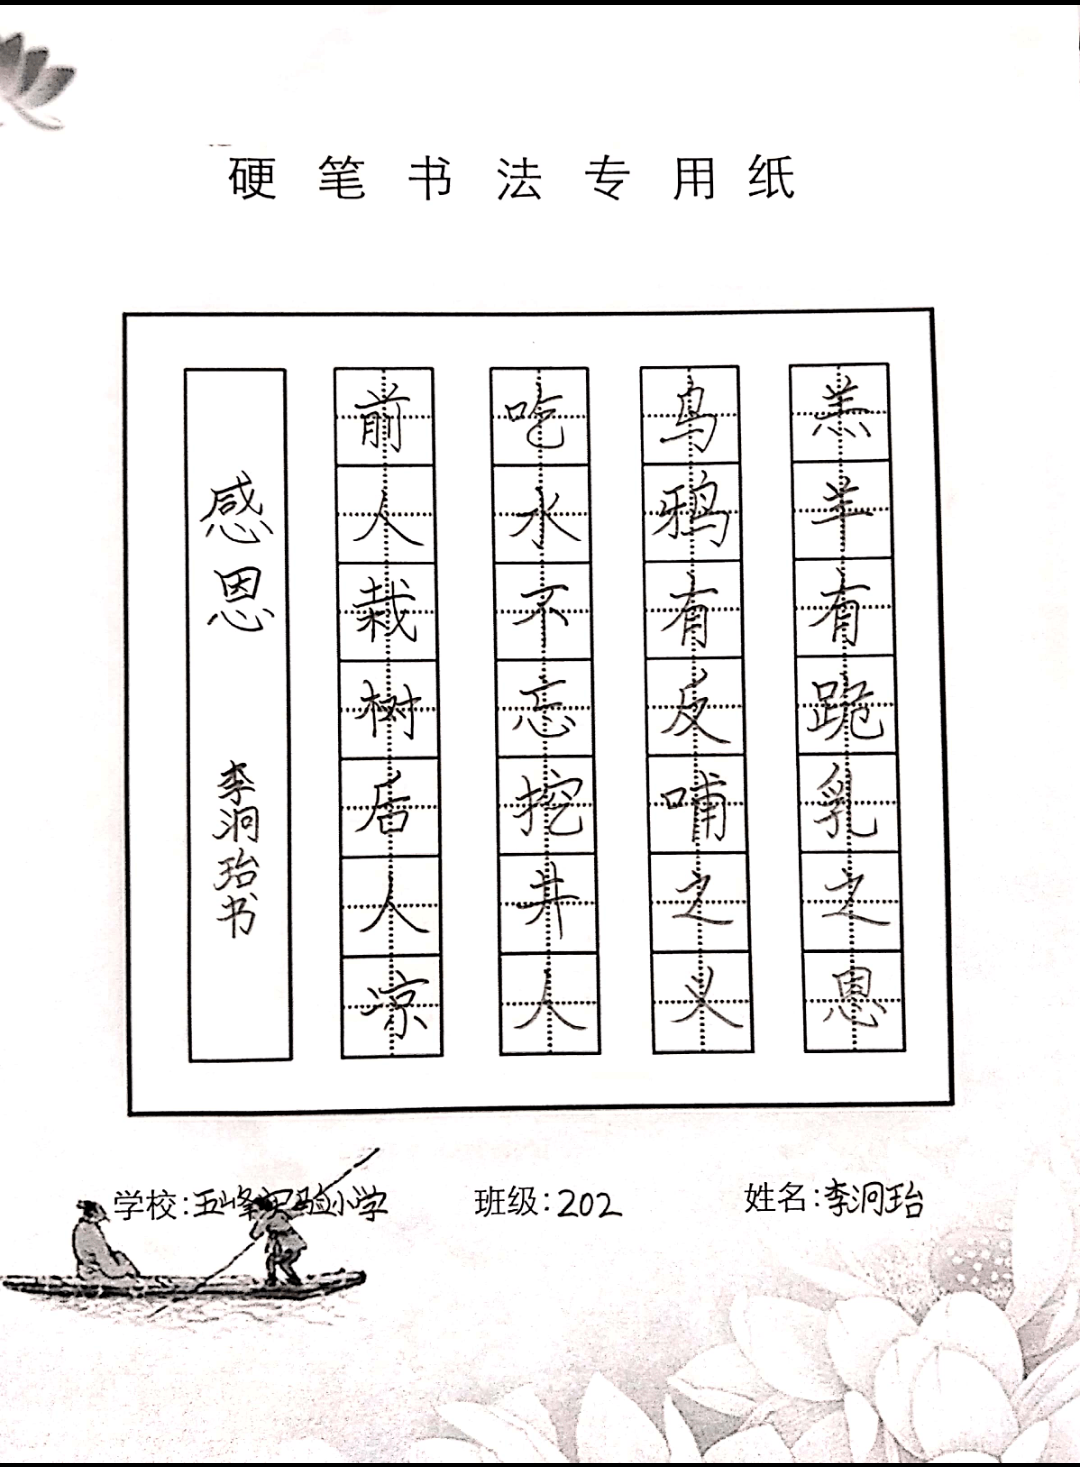 硬笔书法专用纸
羔羊有跪乳之恩
乌鸦有反哺之义
吃水不忘挖井人
前人栽树后人凉
感恩
李泂珆书
学校:五峰实验小学
班级:202
姓名:李泂珆